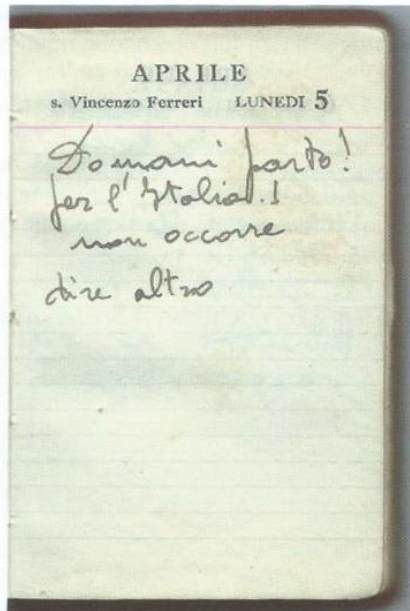 APRILE
s. Vincenzo Ferreri LUNEDI 5
Domani parto!
per l'Italia.!
non occorre
dire altro